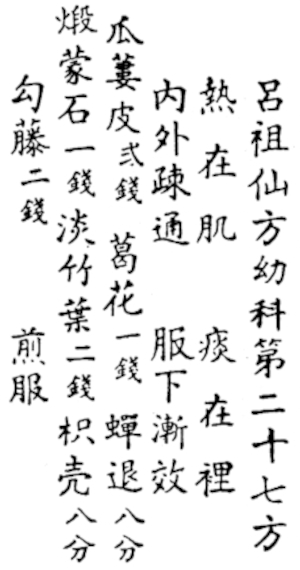 呂祖仙方幼科第二十七方
熱在肌 痰在裡
內外疎通 服下漸效
瓜蔞皮弍錢 葛花一錢 蟬退八分
煅蒙石一錢 淡竹葉二錢 枳壳八分
勾藤二錢 煎服